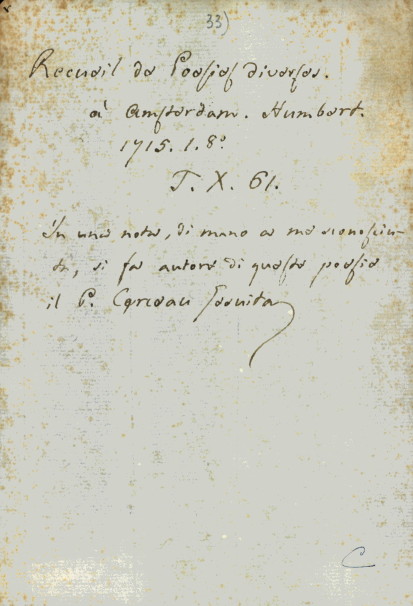 33)
Recueil de Poesies diverses.
à Amsterdam. Humbert.
1715. 1. 8º
T. X. 61.
In una nota, di mano a me sconosciu-
ta, si fa autore di queste poesie
il P. Cerceau Gesuita
C